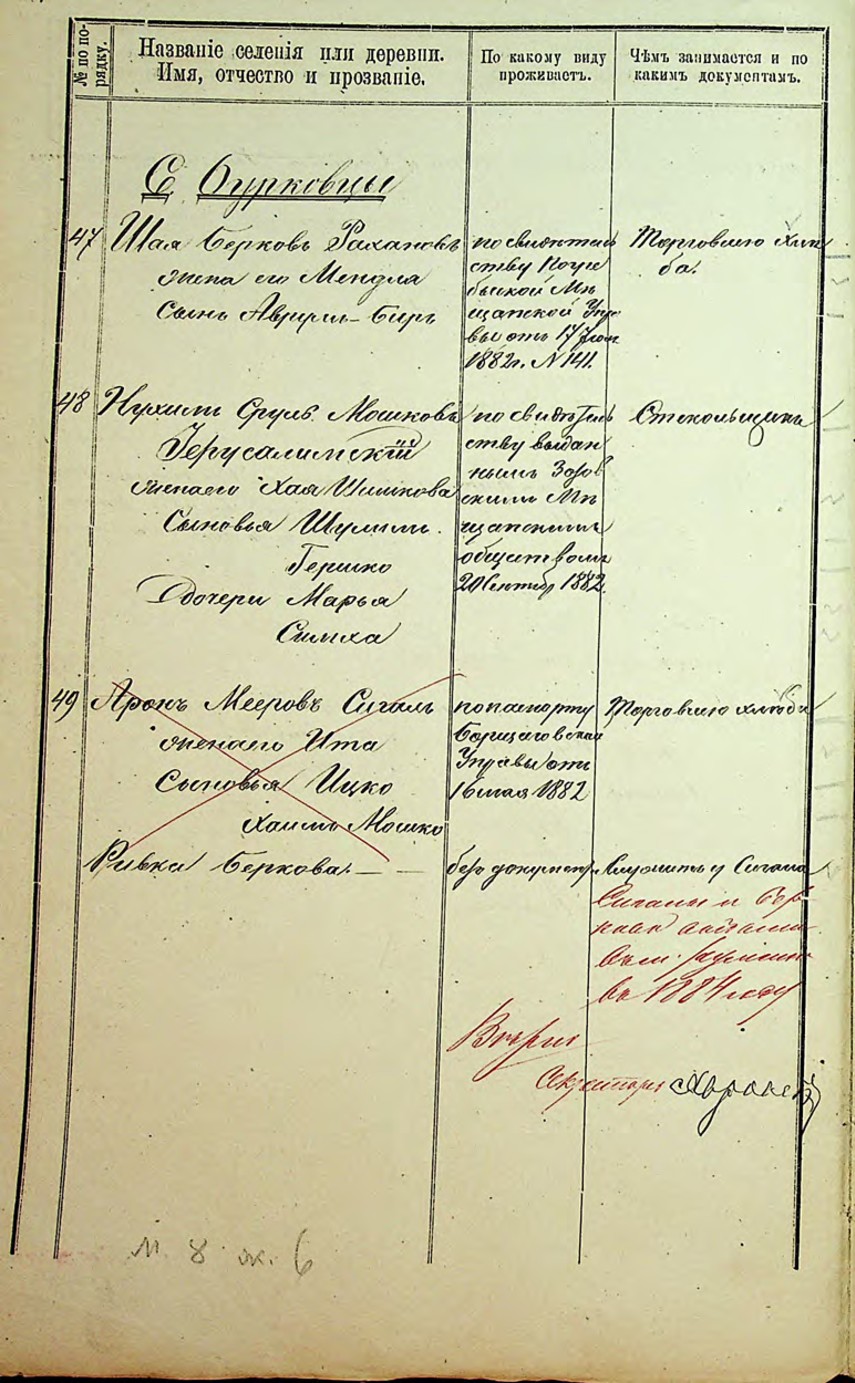 № по по-
рядку.
Названіе селенія или деревни.
Имя, отчество и прозваніе.
По какому виду
проживаетъ.
Чѣмъ занимается и по
какимъ документамъ.
С Бурковцы
47 Шая Берковъ Рахановъ
жена его Мендля
Сынъ Аврумъ-Беръ
по свидѣтель
ству
Мѣ
щанской Упра
вы отъ 17
1882г. N 141.
Торговлею хлѣ
ба.
48 Нухимъ Сруль Мошковъ
Іерусалимскій
жена его Хая Шмшкова
Сыновья Шулимъ
Гершко
Дочери Марья
Симха
по свидѣтель
ству выдан
нымъ
скимъ Мѣ
щанскимъ
обществомъ
20 Сентяб 1882.
Стекольщикъ
49 Аронъ Мееровъ Сигалъ
жена его Ита
Сыновья Ицко
Хаимъ Мошко
по паспорту
Управы отъ
16 мая 1882
Торговлею хлѣба
Ривка Беркова. — —
безъ документ.
Служитъ у Сигала
Сигалы и Бер
кова
въ 1884 году
Вѣрно
Секретарь
м. 8 ж. 6